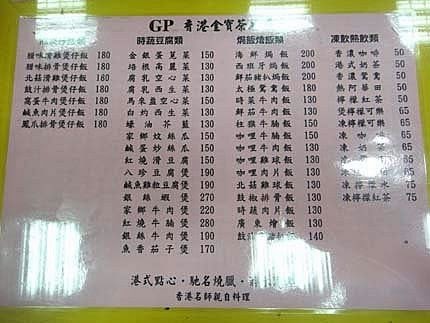 GP 香港金寶茶
時蔬豆腐類
焗飯燴飯類
凍飲熱飲類
臘味滑雞煲仔飯 180
臘味排骨煲仔飯 180
北菇滑雞煲仔飯 180
豉汁排骨煲仔飯 180
窩蛋牛肉煲仔飯 180
鹹魚肉片煲仔飯 180
鳳爪排骨煲仔飯 180
金銀蛋莧菜 150
培根高麗菜 150
腐乳空心菜 150
腐乳西生菜 150
馬來盞空心菜 150
白灼西生菜 130
蠔油芥藍 130
家鄉炆絲瓜 150
鹹蛋炒絲瓜 150
紅燒滑豆腐 150
八珍豆腐煲 190
鹹魚雞粒豆腐煲 170
銀絲蝦煲 270
家鄉牛肉煲 220
紅燒牛腩煲 280
銀絲牛肉煲 190
魚香茄子煲 170
海鮮焗飯 200
西班牙焗飯 200
鮮茄豬扒焗飯 200
太極鴛鴦飯 180
時菜牛肉飯 130
鮮茄牛肉飯 130
紅椒牛腩飯 150
咖哩牛腩飯 150
咖哩牛肉飯 130
咖哩雞球飯 130
咖哩肉片飯 130
北菇雞球飯 130
豉椒排骨飯 130
時蔬肉片飯 130
廣東燴飯 130
豉汁 飯 140
香濃咖啡 50
港式奶茶 50
香濃鴛鴦 50
熱阿華田 50
檸檬紅茶 50
煲檸檬可樂 65
凍檸檬可樂 65
凍咖啡 65
凍奶茶 65
凍鴛鴦 65
凍檸檬水 75
凍檸檬紅茶 75
港式點心·馳名燒臘·
香港名師親自料理